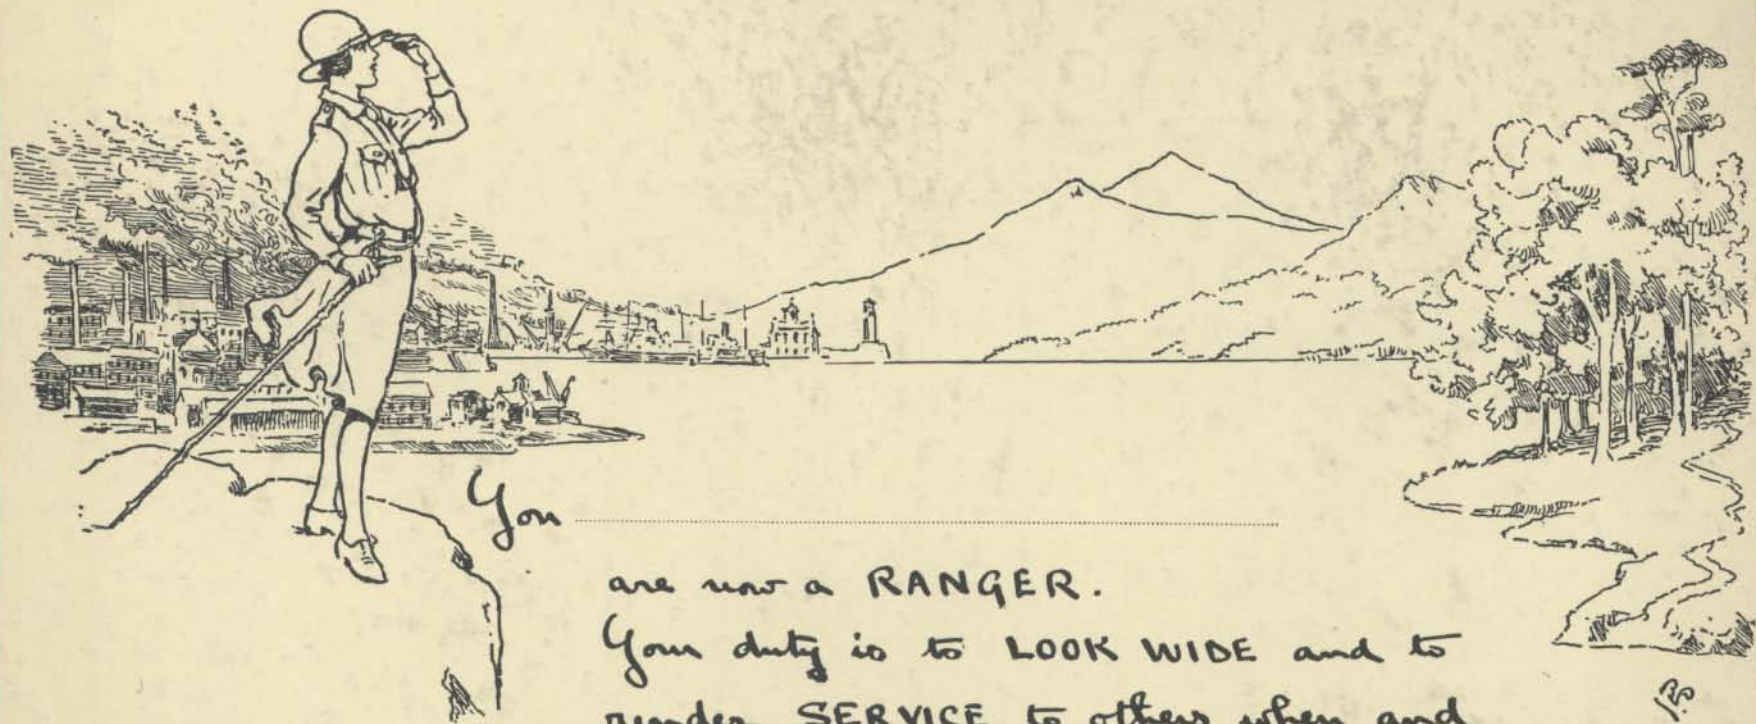 You
are now a RANGER.
Your duty is to LOOK WIDE and to
render SERVICE to others when and